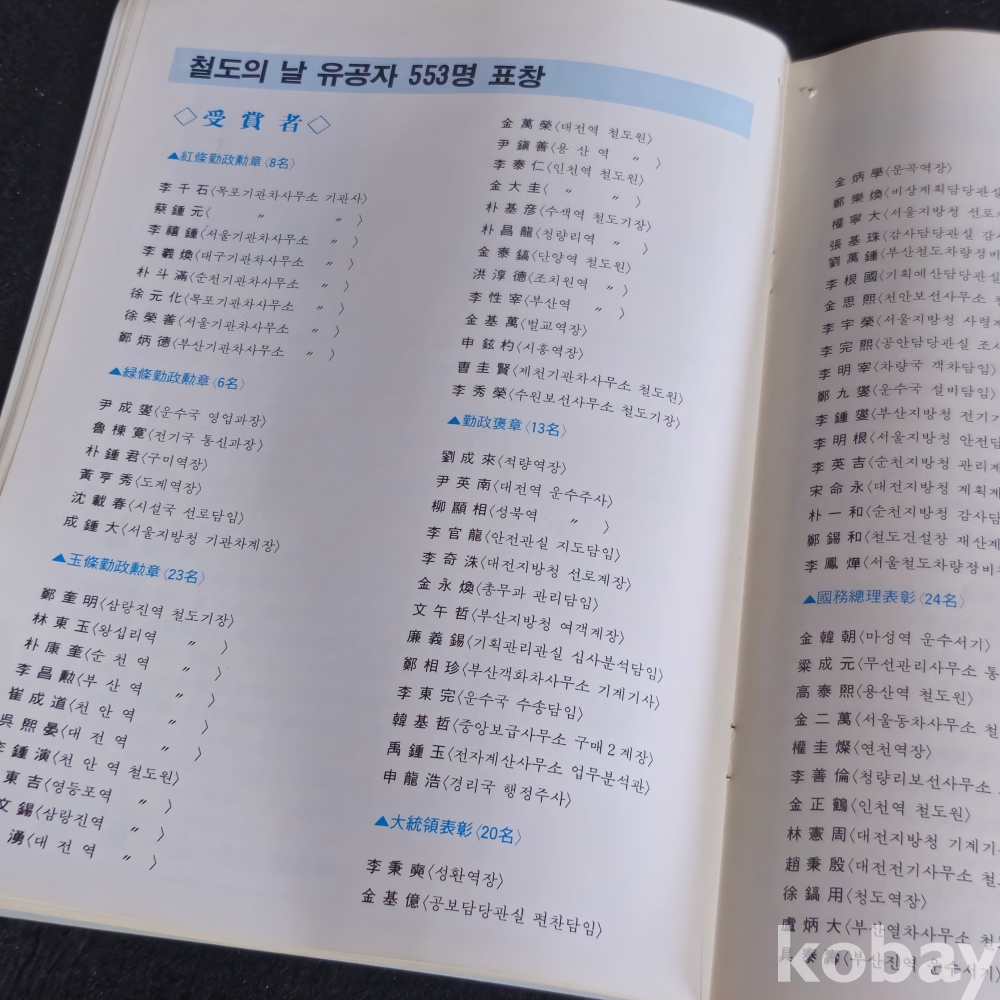 철도의 날 유공자 553명 표창
◇受賞者◇
▲紅條勤政勲章〈8名〉
李千石〈목포기관차사무소 기관사〉
蔡鍾元〈 〃 〃 〉
李禧鍾〈서울기관차사무소 〃 〉
李義煥〈대구기관차사무소 〃 〉
朴斗滿〈순천기관차사무소 〃 〉
徐元化〈목포기관차사무소 〃 〉
徐榮善〈서울기관차사무소 〃 〉
鄭炳德〈부산기관차사무소 〃 〉
▲緑條勤政勲章〈6名〉
尹成燮〈운수국 영업과장〉
魯棟寛〈전기국 통신과장〉
朴鍾君〈구미역장〉
黃亨秀〈도계역장〉
沈載春〈시설국 선로담임〉
成鍾大〈서울지방청 기관차계장〉
▲玉條勤政勲章〈23名〉
鄭奎明〈삼랑진역 철도기장〉
林東玉〈왕십리역 〃 〉
朴康奎〈순천역 〃 〉
李昌勲〈부산역 〃 〉
崔成道〈천안역 〃 〉
吳熙晏〈대전역 〃 〉
李鍾演〈천안역 철도원〉
東吉〈영등포역 〃 〉
文錫〈삼랑진역 〃 〉
湧〈대전역 〃 〉
金萬榮〈대전역 철도원〉
尹鎭善〈용산역 〃 〉
李泰仁〈인천역 철도원〉
金大圭〈 〃 〃 〉
朴基彦〈수색역 철도기장〉
朴昌龍〈청량리역 〃 〉
金泰鎬〈단양역 철도원〉
洪淳德〈조치원역 〃 〉
李性宰〈부산역 〃 〉
金基萬〈벌교역장〉
申鉉杓〈시흥역장〉
曺圭賢〈제천기관차사무소 철도원〉
李秀榮〈수원보선사무소 철도기장〉
▲勤政褒章〈13名〉
劉成來〈적량역장〉
尹英南〈대전역 운수주사〉
柳顯相〈성북역 〃 〉
李官龍〈안전관실 지도담임〉
李奇洙〈대전지방청 선로계장〉
金永煥〈총무과 관리담임〉
文午哲〈부산지방청 여객계장〉
廉義錫〈기획관리관실 심사분석담임〉
鄭相珍〈부산객화차사무소 기계기사〉
李東完〈운수국 수송담임〉
韓基哲〈중앙보급사무소 구매2계장〉
禹鍾玉〈전자계산사무소 업무분석관〉
申龍浩〈경리국 행정주사〉
▲大統領表彰〈20名〉
李秉奭〈성환역장〉
金基億〈공보담당관실 편찬담임〉
金炳學〈문곡역장〉
鄭樂煥〈비상계획담당관실
權寧大〈서울지방청 선로
張基珠〈감사담당관실 감사
劉萬鍾〈부산철도차량정비
李根國〈기획예산담당관실
金思熙〈천안보선사무소
李宇榮〈서울지방청 사령
李完熙〈공안담당관실 조사
李明宰〈차량국 객차담임〉
鄭九燮〈운수국 설비담임〉
李鍾燮〈부산지방청 전기
李明根〈서울지방청 안전담
李英吉〈순천지방청 관리계
宋命永〈대전지방청 계획계
朴一和〈순천지방청 감사담
鄭錫和〈철도건설창 재산계
李鳳燁〈서울철도차량정비
▲國務總理表彰〈24名〉
金韓朝〈마성역 운수서기〉
梁成元〈무선관리사무소 통
高泰熙〈용산역 철도원〉
金二萬〈서울동차사무소 철
權圭燦〈연천역장〉
李善倫〈청량리보선사무소
金正鶴〈인천역 철도원〉
林憲周〈대전지방청 기계기
趙秉殷〈대전전기사무소 철
徐鎬用〈청도역장〉
盧炳大〈부산열차사무소
具泰壽〈부산진역 운수서기〉
kobay